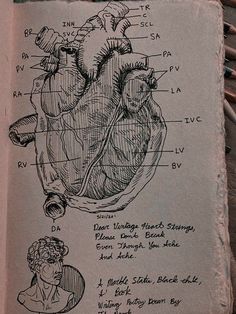 TR
C
INN
SCL
BR
SVC
SA
PA
PA
PV
PV
RA
LA
IVC
RV
LV
BV
DA
Dear Vintage Heart Strings,
Please Dont Break
Even Though You Ache
And Ache.
A Marble Statue, Black-
Book
Writing Poetry Down By